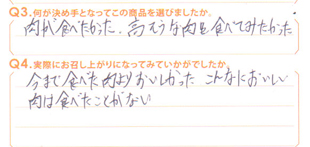 Q3.何が決め手となってこの商品を選びましたか。
肉が食べたかった.高そうな肉を食べてみたかった
Q4.実際にお召し上がりになってみていかがでしたか。
今まで食べた肉よりおいしかった こんなにおいしい
肉は食べたことがない